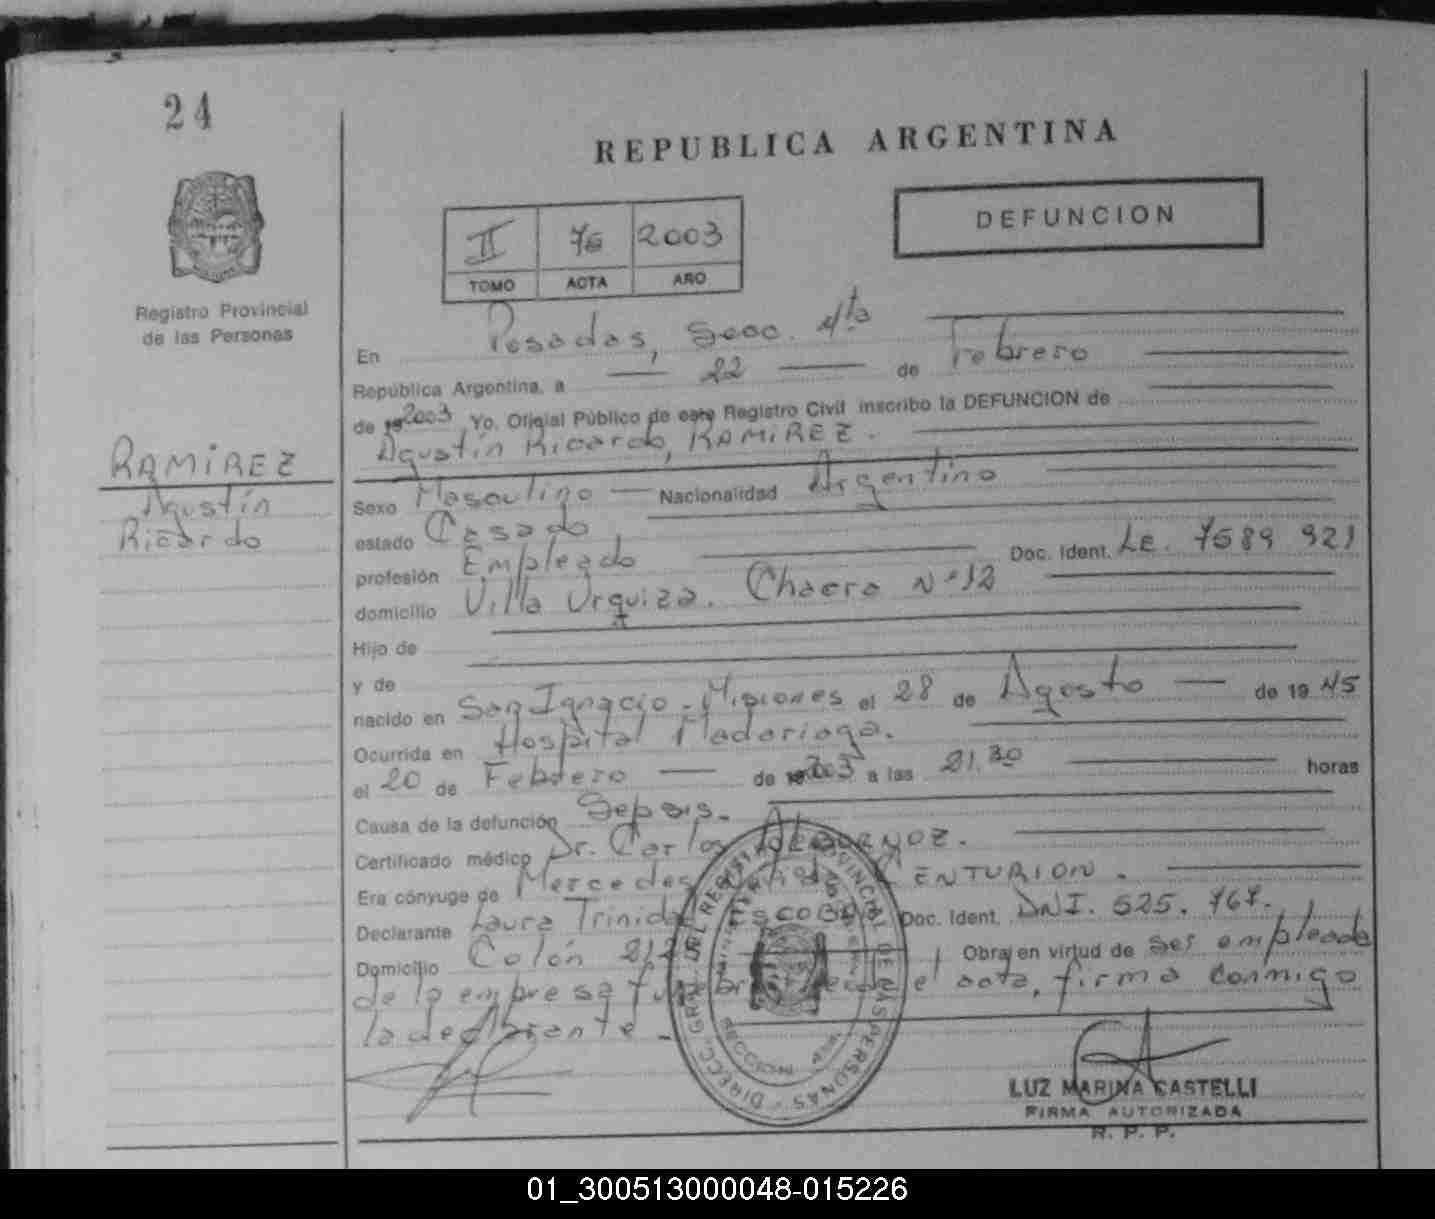 24
REPUBLICA ARGENTINA
DEFUNCION
II 76 2003
TOMO ACTA AÑO
Registro Provincial
de las Personas
RAMIREZ
Agustín
Ricardo
En Posadas, Secc. 4ta
República Argentina, a 22 de Febrero
de 2003 Yo, Oficial Público de este Registro Civil inscribo la DEFUNCION de
Agustín Ricardo, RAMIREZ.
Sexo Masculino Nacionalidad Argentino
estado Casado
profesión Empleado Doc. Ident. L.E. 7589 921
domicilio Villa Urquiza. Chacra Nº 12
Hijo de
y de
nacido en San Ignacio - Misiones el 28 de Agosto de 19 45
Ocurrida en Hospital Madariaga.
el 20 de Febrero de 2003 a las 21.30 horas
Causa de la defunción Sepsis.
Certificado médico Dr. Carlos ALBORNOZ.
Era cónyuge de Mercedes CENTURION.
Declarante Laura Trinidad ESCOBAR Doc. Ident. DNI. 525. 767.
Domicilio Colón Obra en virtud de ser empleada
de la empresa el acta, firma conmigo
la declarante
LUZ MARINA CASTELLI
FIRMA AUTORIZADA
R. P. P.
01_300513000048-015226